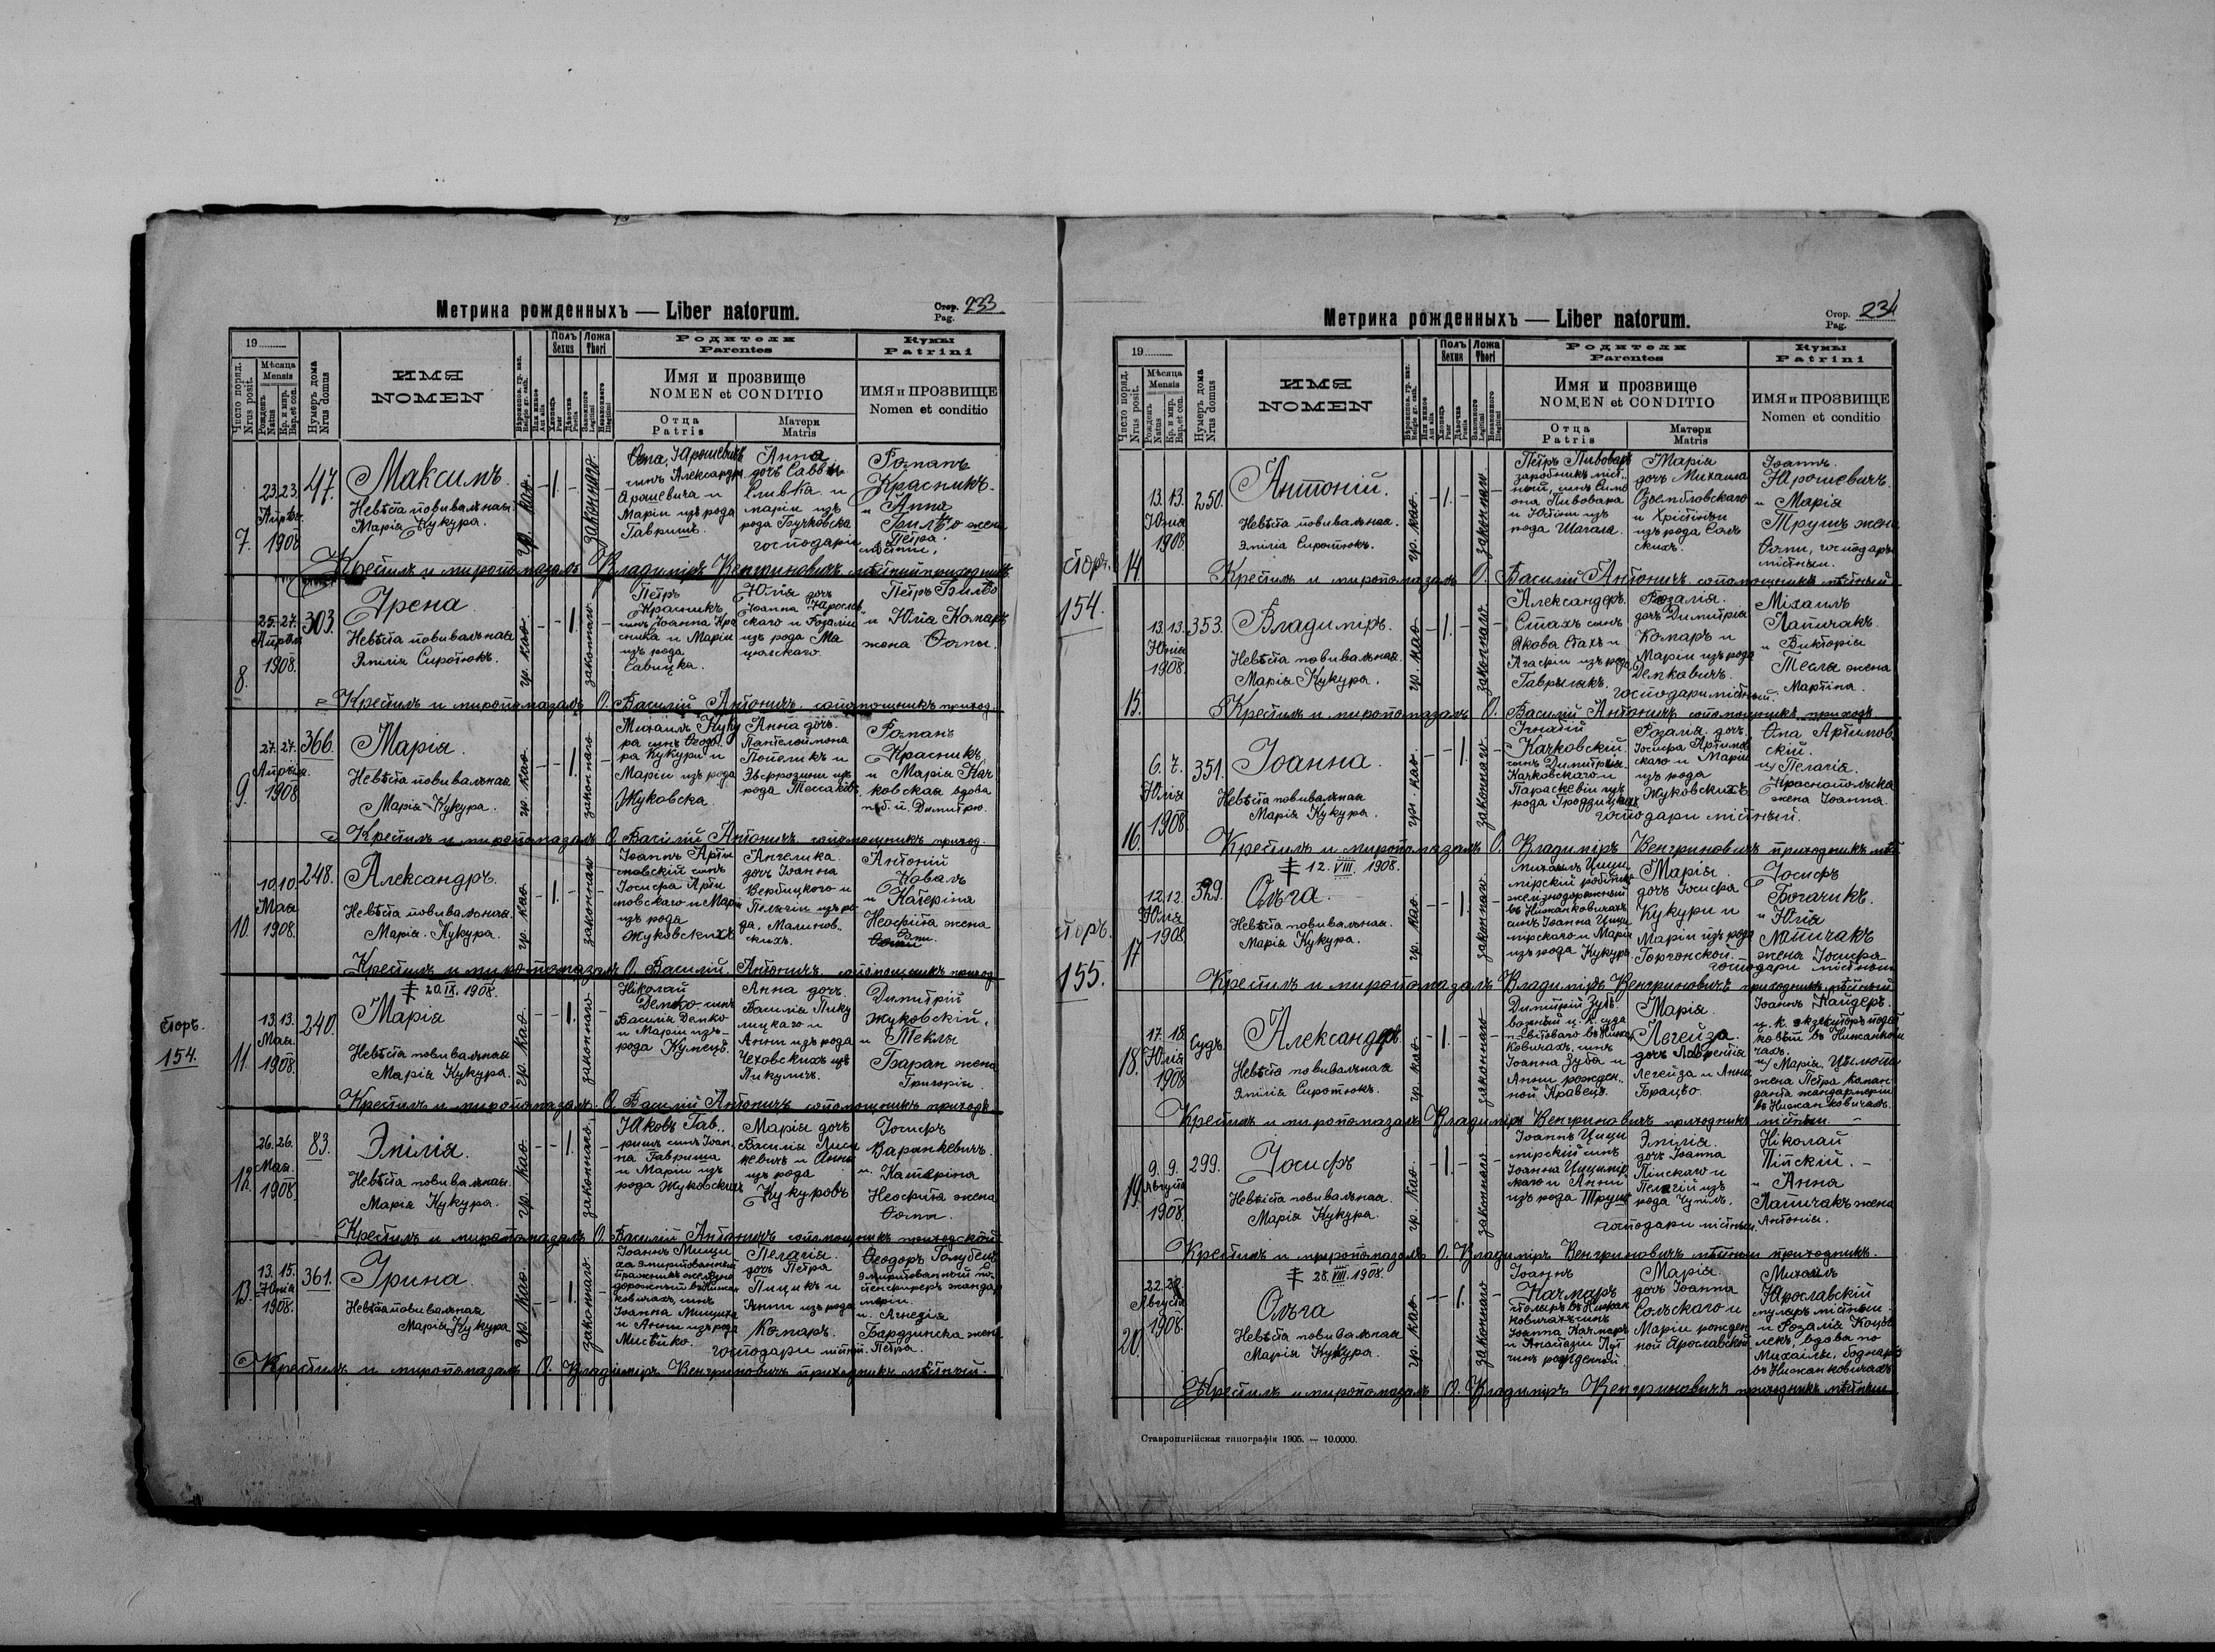 Метрика рожденныхъ — Liber natorum.
Стор. 233
Pag.
19
Число поряд.
Nrus posit.
Мѣсяца
Mensis
Рожденъ
Natus
Кр. и мир.
Bap. et con.
Нумеръ дома
Nrus domus
ИМЯ
NOMEN
Полъ
Sexus
Ложа
Thori
Родители
Parentes
Имя и прозвище
NOMEN et CONDITIO
Отца
Patris
Матери
Matris
Кумы
Patrini
ИМЯ и ПРОЗВИЩЕ
Nomen et conditio
7.
23. 23.
1908
47.
Максимъ.
Невѣста повивальная
Марія Кукура.
гр. као.
1.
сынъ Александра
Ярошевича и
Маріи изъ рода
Гавришъ.
Анна
дочь Саввы
Сливка и
Маріи изъ
рода Бучковска
господаріи
Романъ
Красникъ
и Анна
Билѣо жена
Петра
Крестилъ и миропомазалъ Владиміръ Венгриновичъ мѣстный приходникъ
8.
25. 27.
1908.
303.
Ирена
Невѣста повивальная
Эмілія Сиротюкъ.
гр. као.
1.
законнаго
Петръ
Красникъ
сынъ Іоанна Кра
сника и Маріи
изъ рода
Савицка.
Юлія дочь
Іоанна Ярослав
скаго и Розаліи
изъ рода Ма
цюлскаго.
Петръ Билѣо
и Юлія Комаръ
жена Ѳомы.
Крестилъ и миропомазалъ О. Василій Антоничъ сопомощникъ приход.
9.
27. 27.
Апрѣля.
1908
366.
Марія.
Невѣста повивальная
Марія Кукура.
гр. као.
1.
законнаго
Михаилъ Куку
ра сынъ Ѳеодо
ра Кукуры и
Маріи изъ рода
Жуковска.
Анна дочь
Пантелеймона
Попеликъ и
Эвфрозины изъ
рода
Романъ
Красникъ
и Марія Кач
ковская вдова
по б. п. Димитрію.
Крестилъ и миропомазалъ О. Василій Антоничъ сопомощникъ приход.
10.
10. 10.
Мая
1908.
248.
Александръ.
Невѣста повивальная.
Марія Кукура.
гр. као.
1.
законнаго
Іоаннъ Арти
мовскій сынъ
Іосифа Арти
мовскаго и Маріи
изъ рода
Жуковскихъ
Ангелика.
дочь Іоанна
Вербицкого и
Пелагіи изъ ро
да Малинов
скихъ.
Антоній
Коваль
и Катерина
Неофита жена
Крестилъ и миропомазалъ О. Василій Антоничъ сопомощникъ приход
Стор.
154.
11.
13. 13.
Мая
1908.
240.
‡ 20. IX. 1908.
Марія
Невѣста повивальная
Марія Кукура.
гр. као.
1.
законнаго
Николай
Демко сынъ
Василія Демко
и Маріи изъ
рода Кулецъ.
Анна дочь
Василія Пику
лицкаго и
Анны изъ рода
Чеховскихъ изъ
Пикуличъ.
Димитрій
Жуковскій,
и Теклы
Баран жена
Григорія.
Крестилъ и миропомазалъ О. Василій Антоничъ сопомощникъ приход.
12.
26. 26.
Мая.
1908.
83.
Эмілія.
Невѣста повивальная.
Марія Кукура.
гр. као.
1.
законнаго
Яковъ Гав
ришъ сынъ Іоан
на Гавриша
и Маріи изъ
рода Жуковскихъ
Марія дочь
Василія Лиси
кевичъ и Анны
изъ рода
Кукуровъ
Іосифъ
Варанкевичъ.
и Катерина
Неофита жена
Ѳомы.
Крестилъ и миропомазалъ О. Василій Антоничъ сопомощникъ приходскій
13.
13. 15.
Юнія
1908.
361.
Ирина.
Невѣста повивальная
Марія Кукура
гр. као.
1.
законнаго
Іоаннъ Мищи
ха эмиритованный
ковичахъ, сынъ
Іоанна Мищиха
и Анны изъ рода
Пелагія.
дочь Петра
Пицикъ и
Анны изъ рода
Комаръ.
господари
Ѳеодоръ Голубецъ
и Агнезія
Бардзинска жена
Петра.
Крестилъ и миропомазалъ О. Владиміръ Венгриновичъ приходникъ мѣстный.
Метрика рожденныхъ — Liber natorum.
Стор. 234
Pag.
19
Число поряд.
Nrus posit.
Мѣсяца
Mensis
Рожденъ
Natus
Кр. и мир.
Bap. et con.
Нумеръ дома
Nrus domus
ИМЯ
NOMEN
Полъ
Sexus
Ложа
Thori
Родители
Parentes
Имя и прозвище
NOMEN et CONDITIO
Отца
Patris
Матери
Matris
Кумы
Patrini
ИМЯ и ПРОЗВИЩЕ
Nomen et conditio
Стор.
154.
14.
13. 13.
Юнія
1908.
250.
Антоній.
Невѣста повивальная.
Эмілія Сиротюкъ.
гр. као.
1.
законнаго
Петръ Пивоваръ
заробникъ мѣст
ный, сынъ Симе
она Пивовара
и Юстины изъ
рода Шагала.
Марія
дочь Михаила
Дзембловскаго
и Христины
изъ рода Соль
скихъ.
Іоаннъ.
Ярошевичъ.
и Марія
Трушъ жена
Ѳомы, господари
мѣстныи.
Крестилъ и миропомазалъ О. Василій Антоничъ сопомощникъ мѣстный
15.
13. 13.
Юнія
1908.
353.
Владиміръ.
Невѣста повивальная.
Марія Кукура.
гр. као
1.
законнаго
Александеръ
Стахъ сынъ
Якова Стахъ и
Агафіи изъ рода
Гаврылакъ.
Розалія.
дочь Димитрія
Комаръ и
Маріи изъ рода
Демкович.
господари мѣстный.
Михаилъ
Лапичакъ.
и Викторія
Тесля жена
Мартина.
Крестилъ и миропомазалъ О. Василій Антоничъ сопомощникъ приход.
16.
6. 7.
Юлія
1908.
351.
Іоанна.
Невѣста повивальная
Марія Кукура.
гр. као.
1.
законнаго
Игнатій
Качковскій.
сынъ Димитрія
Качковскаго и
Параскевіи изъ
рода Гродзицкихъ
Розалія дочь
Іосифа Артимов
скаго и Маріи
изъ рода
Жуковскихъ
господари мѣстный.
Ѳома Артимов
скій.
и Пелагія.
Краснопольска
жена Іоанна.
Крестилъ и миропомазалъ О. Владиміръ Венгриновичъ приходникъ мѣст.
стор.
155.
17
12. 12.
Юлія
1908.
329.
‡ 12. VIII. 1908.
Ольга.
Невѣста повивальная.
Марія Кукура.
гр. као.
1.
законнаго
Михаилъ Цици
мірскій робітник
желѣзнодорожный
въ Нижанковичахъ
сынъ Іоанна Цици
мірскаго и Маріи
изъ рода Кукура
Марія.
дочь Іосифа
Кукуры и
Маріи изъ рода
Горгонской.
господари мѣстныи
Іосифъ
Богачикъ.
и Юлія
Лапичакъ
жена Іосифа
Крестилъ и миропомазалъ Владиміръ Венгриновичъ приходникъ мѣстный
18.
17. 18.
Юлія
1908
Судъ.
Александеръ
Невѣста повивальная
Эмілія Сиротюкъ.
гр. као.
1.
законнаго
Димитрій Зубъ.
возный ц. к. суда
повѣтоваго въ Нижан
ковичахъ, сынъ
Іоанна Зуба и
Анны рожден
ной Кравецъ.
Марія.
Легейза.
дочь Лаврентія
Легейза и Анны
Брацьо.
Іоаннъ Кайдеръ.
ц. к. экзекуторъ подат
ковый въ Нижанкови
чахъ.
и Марія
жена Петра коман
данта жандармеріи
въ Нижанковичахъ.
Крестилъ и миропомазалъ Владиміръ Венгриновичъ приходникъ мѣстный.
19.
9. 9.
Августа
1908.
299.
Іосифъ
Невѣста повивальная.
Марія Кукура.
гр. као.
1.
законнаго
Іоаннъ Цици
мірскій сынъ
Іоанна Цицимір
скаго и Анны
изъ рода Трушъ
Эмілія.
дочь Іоанна
Пінскаго и
Пелагіи изъ
рода Чупиль.
господари мѣстныи.
Николай
Пінскій.
и Анна
Лапичакъ жена
Антонія.
Крестилъ и миропомазалъ О. Владиміръ Венгриновичъ мѣстный приходникъ.
20.
22. 22.
Августа
1908.
‡ 28. VIII. 1908.
Ольга
Невѣста повивальная
Марія Кукура.
гр. као.
1.
законнаго
Іоаннъ
Качмаръ
столяръ въ Нижан
ковичахъ сынъ
Іоанна Качмаръ
и Анастазіи
рожденной.
Марія.
дочь Іоанна
Сольскаго и
Маріи рожден
ной Ярославской
Михаилъ
Ярославскій
муляръ мѣстный.
и Розалія Коцов
лекъ, вдова по
Михаилѣ, боднаръ
въ Нижанковичахъ
Крестилъ и миропомазалъ О. Владиміръ Венгриновичъ приходникъ мѣстный
Ставропигійская типографія 1905. — 10.0000.